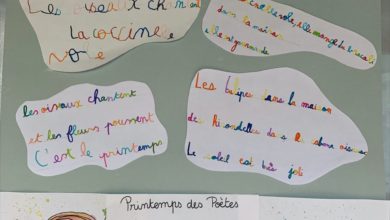 Les oiseaux chantent
La coccinelle
vole
dans la maison
elle est gourmande
les oiseaux chantent
et les fleurs poussent
C'est le printemps
Les tulipes dans la maison
des hirondelles dans les cabane oiseaux
Le soleil est très joli
Printemps des Poètes